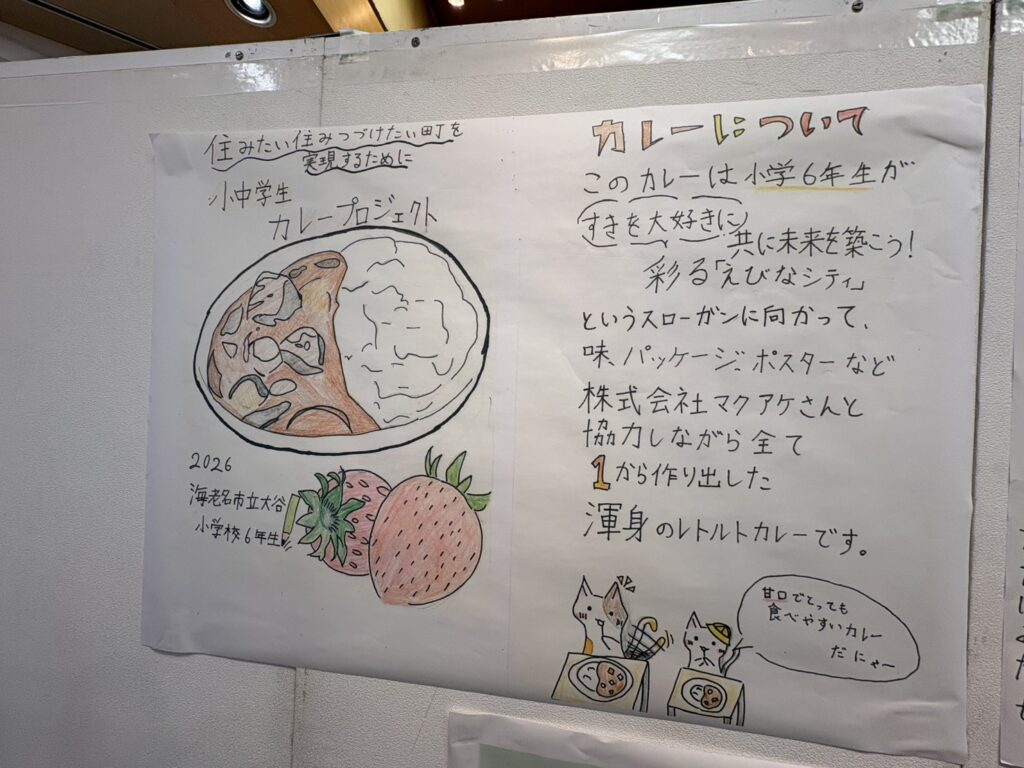 住みたい住みつづけたい町を
実現するために
小中学生
カレープロジェクト
2026
海老名市立大谷
小学校6年生
カレーについて
このカレーは小学6年生が
すきを大好きに
共に未来を築こう!
彩る「えびなシティ」
というスローガンに向かって、
味、パッケージ、ポスターなど
株式会社マクアケさんと
協力しながら全て
1から作り出した
渾身のレトルトカレーです。
甘口でとっても
食べやすいカレー
だにゃー